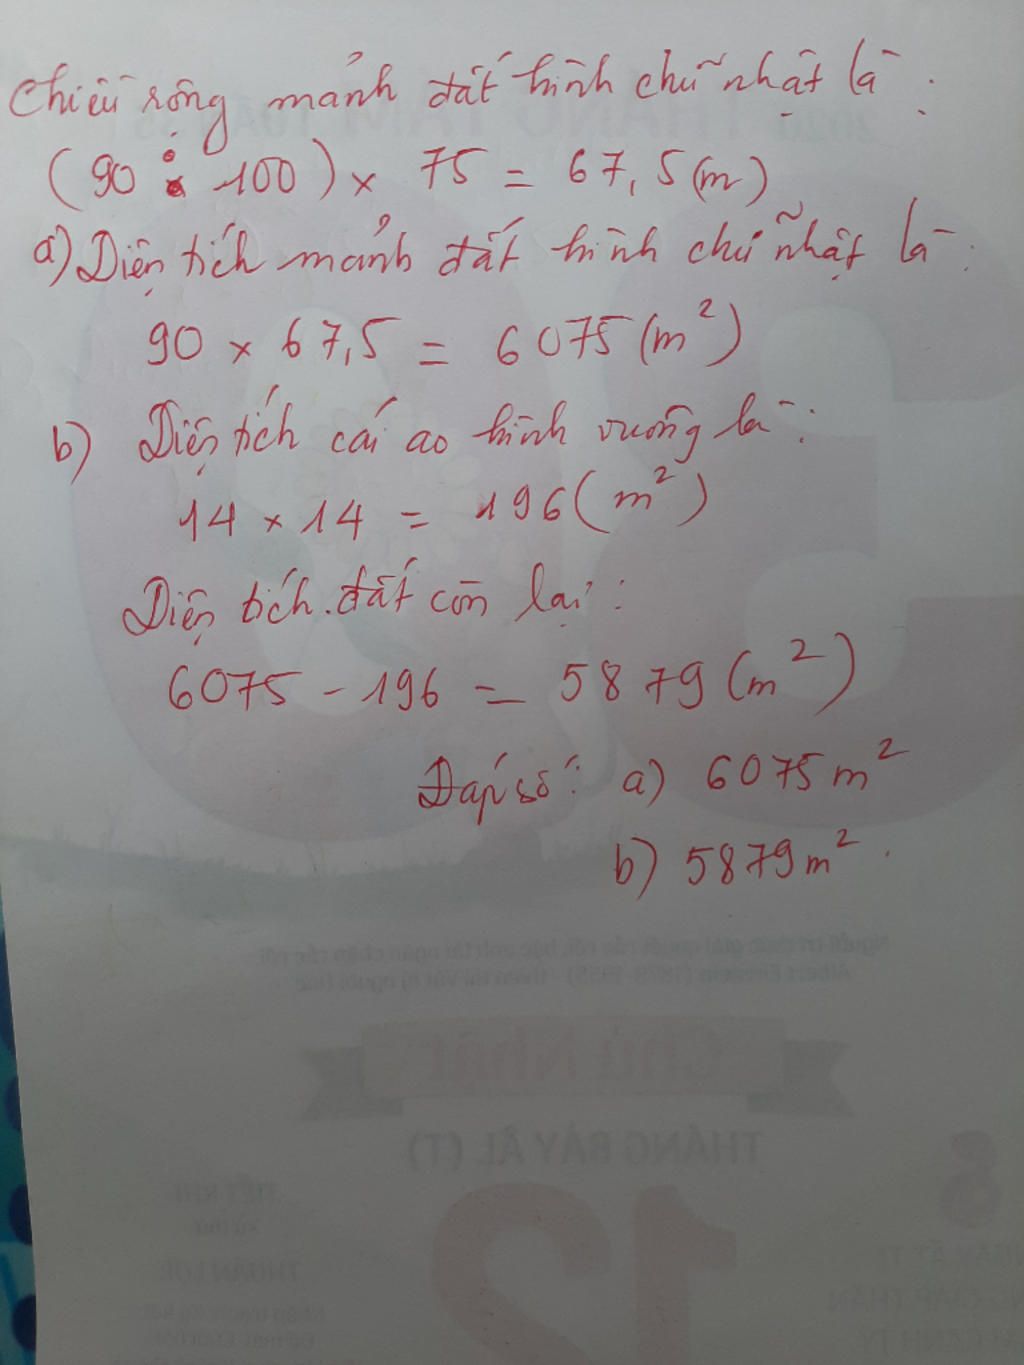 Chiều rộng mảnh đất hình chữ nhật là :
(90 : 100) x 75 = 67,5(m)
a) Diện tích mảnh đất hình chữ nhật là :
90 x 67,5 = 6075 (m²)
b) Diện tích cái ao hình vuông là :
14 x 14 = 196 (m²)
Diện tích đất còn lại :
6075 - 196 = 5879 (m²)
Đáp số : a) 6075 m²
b) 5879 m² .
Chủ Nhật
THÁNG BẢY ÂL (T)
12